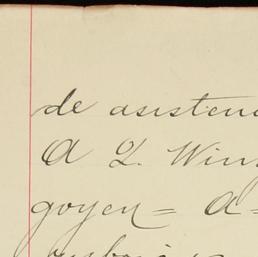 de asistenc
A L. Win
goyen= A=